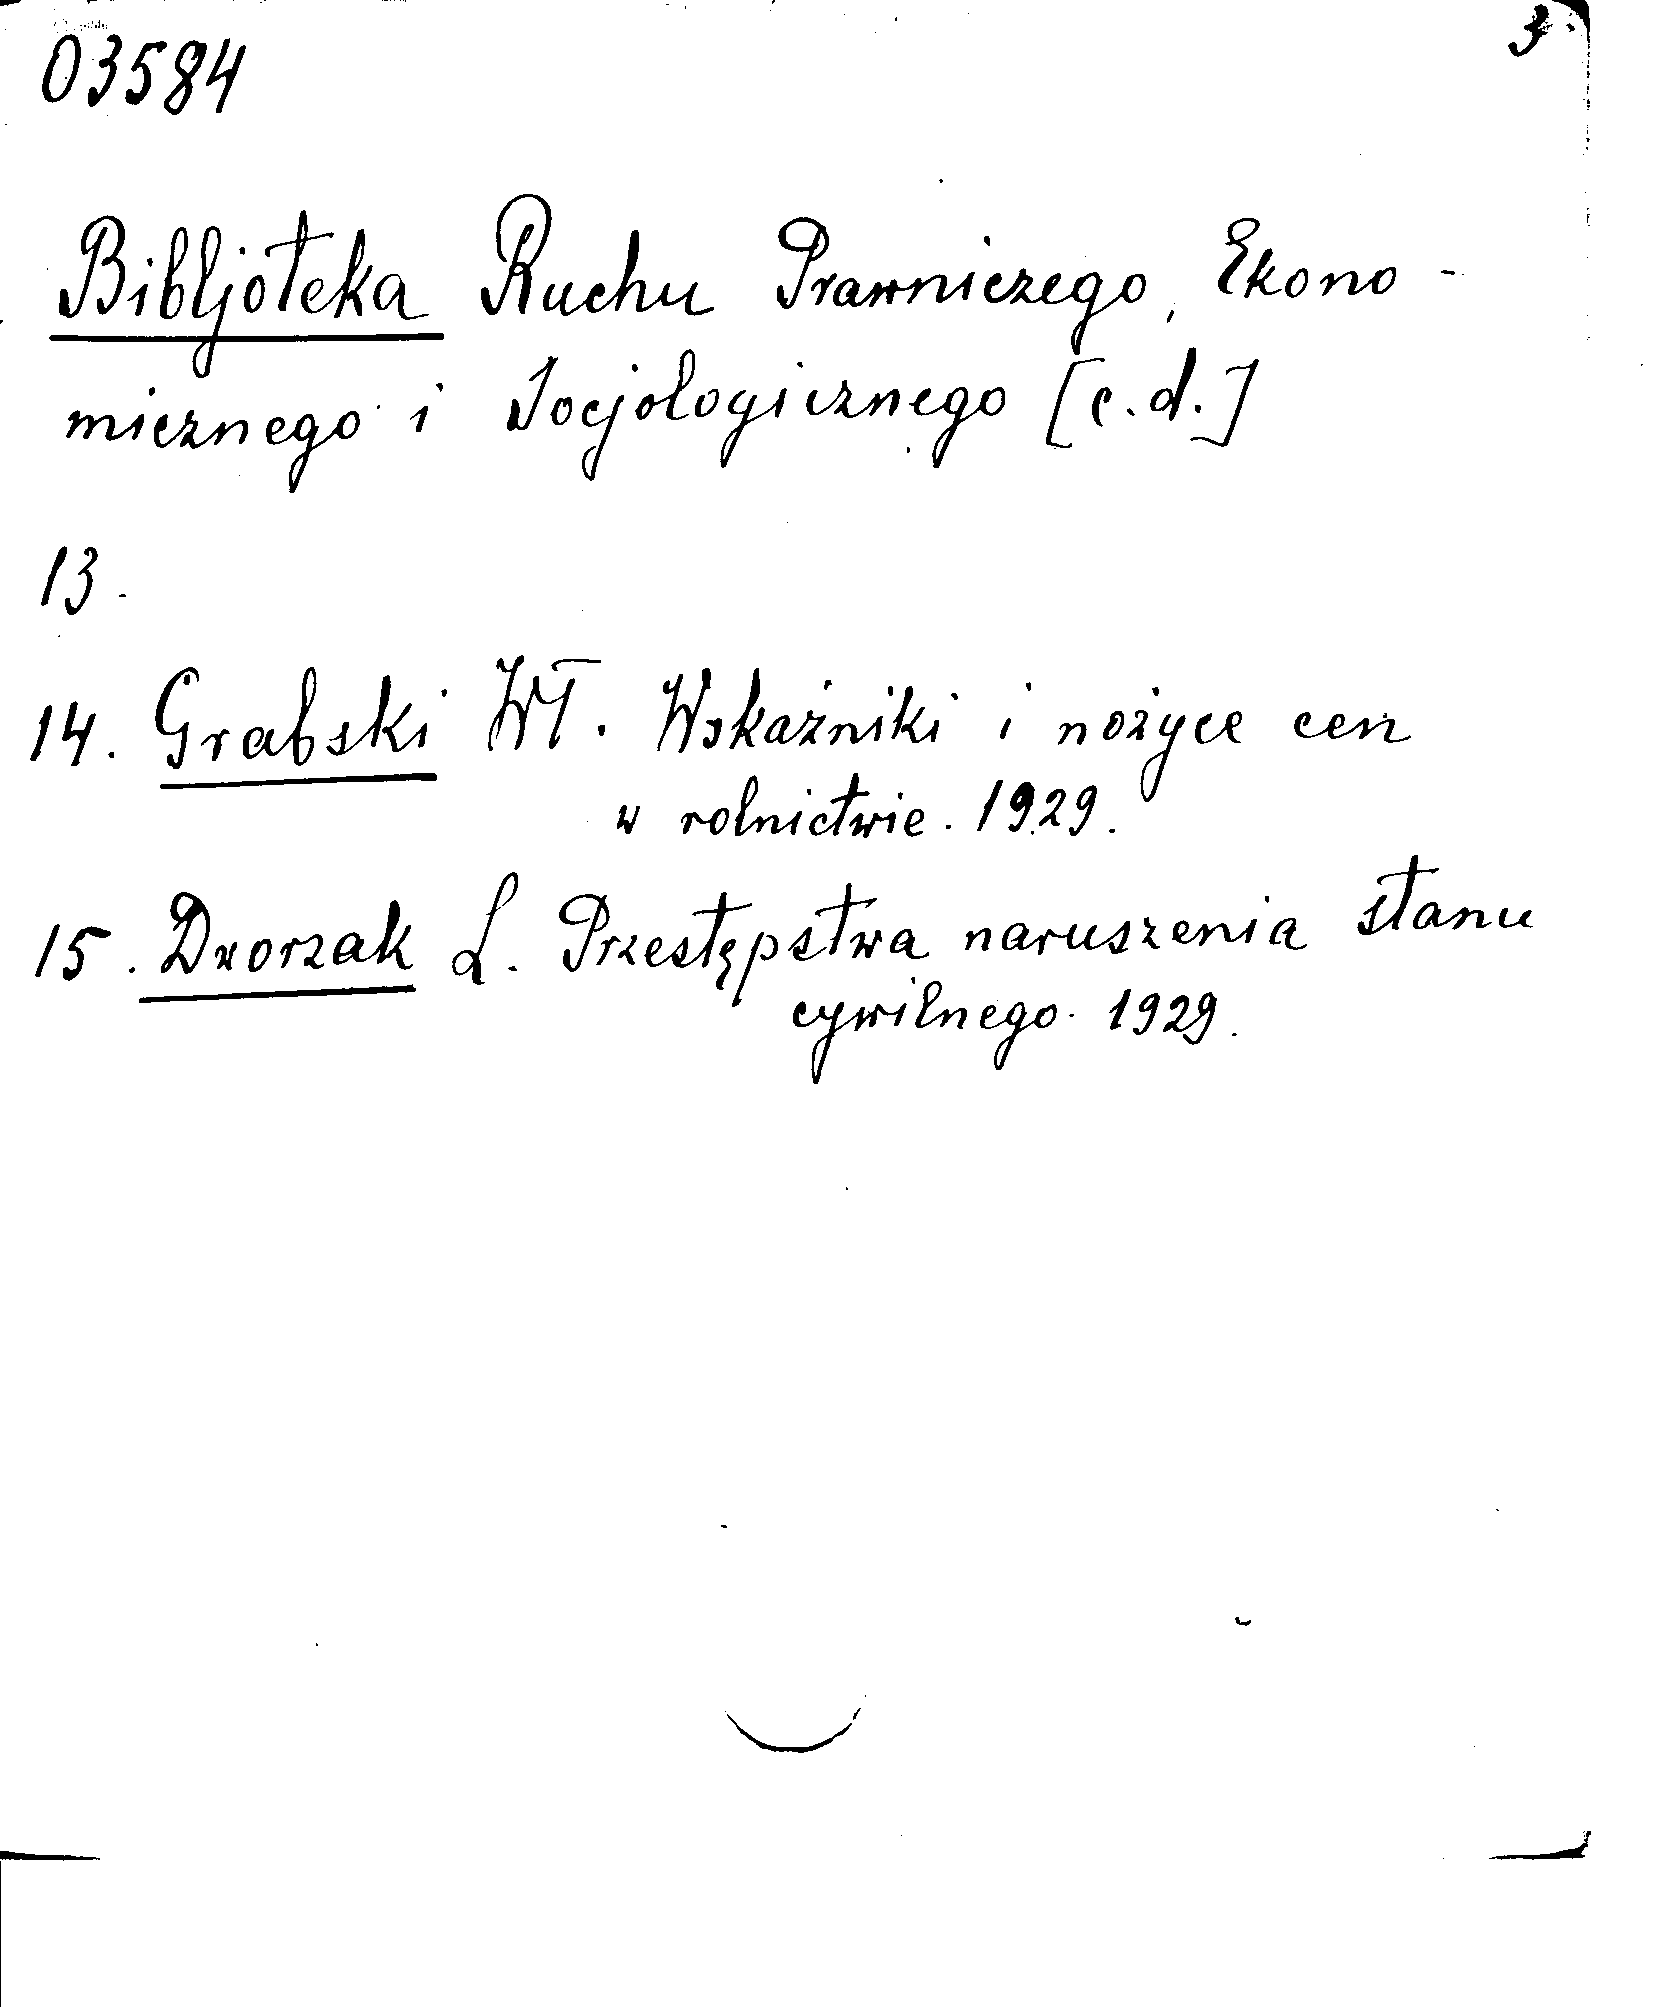 03584
3
Bibljoteka Ruchu Prawniczego, Ekono-
micznego i Socjologicznego [c.d.]
13.
14. Grabski Wł. Wskaźniki i nożyce cen
w rolnictwie. 1929.
15. Dworzak L. Przestępstwa naruszenia stanu
cywilnego. 1929.